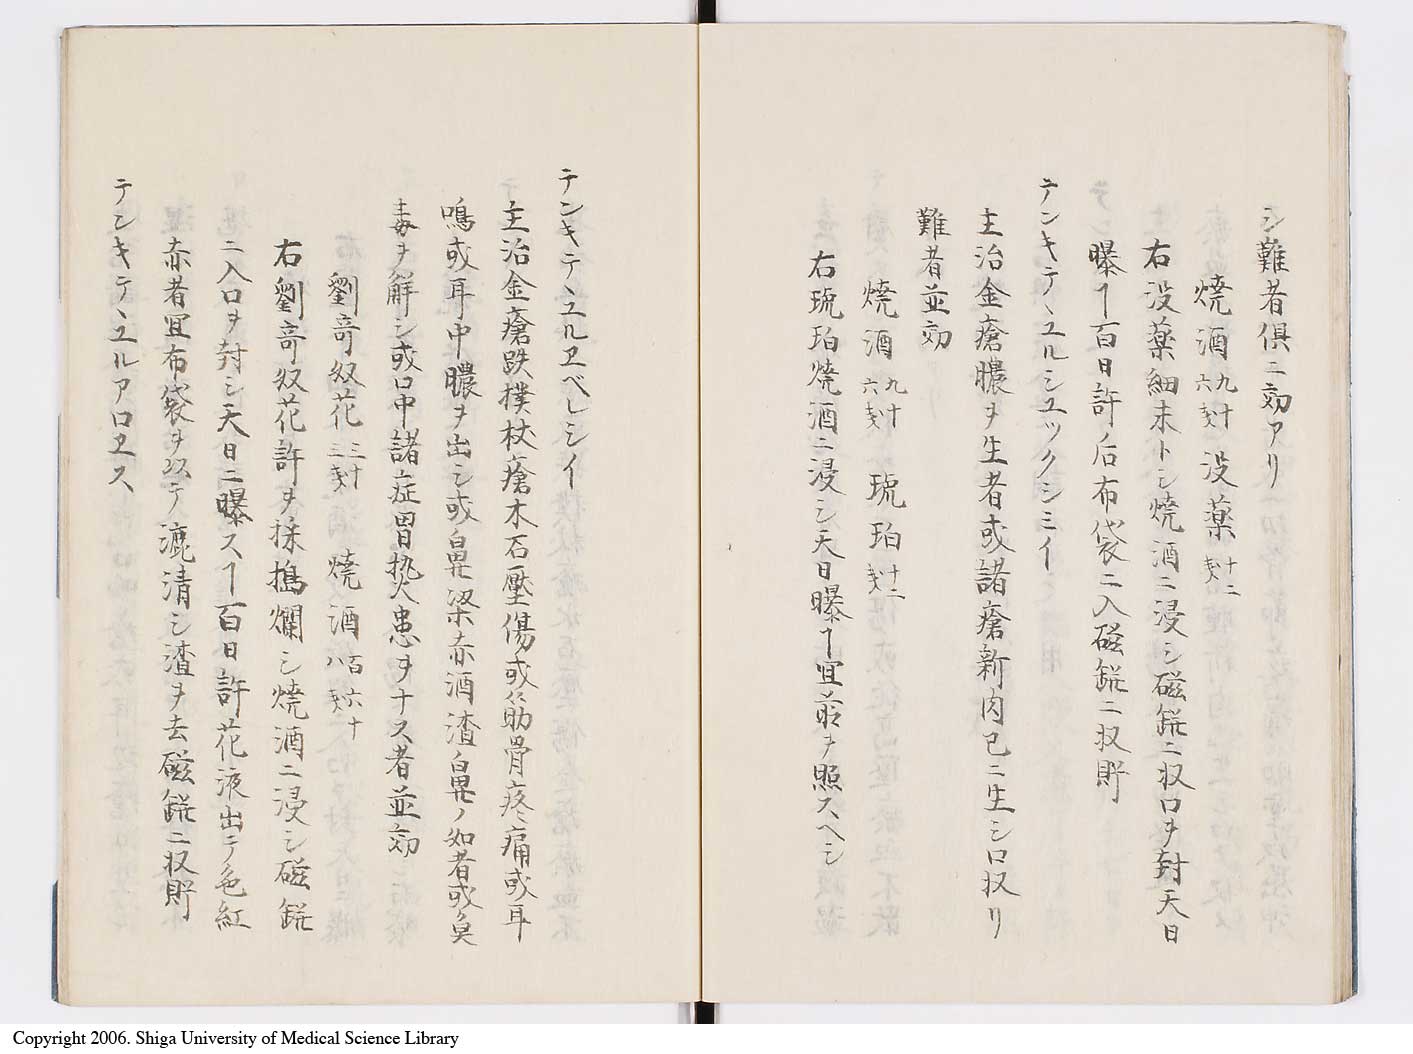 シ難者俱ニ効アリ
焼酒 九十六銭 没薬 十二銭
右没薬細末トシ焼酒ニ浸シ磁鋎ニ収口ヲ封天日
曝ヿ百日許ノ后布袋ニ入磁鋎ニ収貯
テンキテ丶ユルシユックシミイ
主治金瘡膿ヲ生者或諸瘡新肉已ニ生シ口収リ
難者並効
焼酒 九十六銭 琥珀 十二銭
右琥珀焼酒ニ浸シ天日曝ヿ宜前ヲ照スヘシ
テンキテ丶ユルヱベレシイ
主治金瘡跌撲杖瘡木石壓傷或筋骨疼痛或耳
鳴或耳中膿ヲ出シ或鼻梁赤酒渣鼻ノ如者或臭
毒ヲ解シ或口中諸症胃热火患ヲナス者並効
劉寄奴花 三十二銭 焼酒 百六十八銭
右劉寄奴花許ヲ採搗爛シ焼酒ニ浸シ磁鋎
ニ入口ヲ封シ天日ニ曝スヿ百日許花液出テ色紅
赤者宜布袋ヲ以テ漉清シ渣ヲ去磁鋎ニ収貯
テンキテ丶ユルアロヱス
Copyright 2006. Shiga University of Medical Science Library